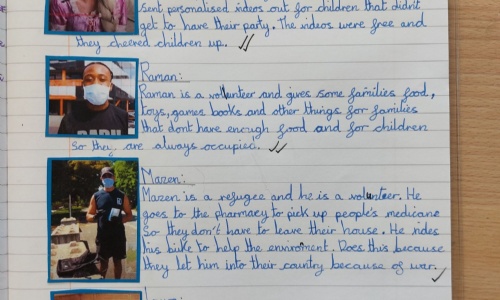 sent personalised videos out for children that didn't
get to have their party. The videos were free and
they cheered children up.
Raman:
Raman is a volunteer and gives some families food,
toys, games books and other things for families
that dont have enough food and for children
So they are always occupied.
Mazen:
Mazen is a refugee and he is a volunteer. He
goes to the pharmacy to pick up people's medicane
So they don't have to leave their house. He rides
his bike to help the enviroment. Does this because
they let him into their country because of war.